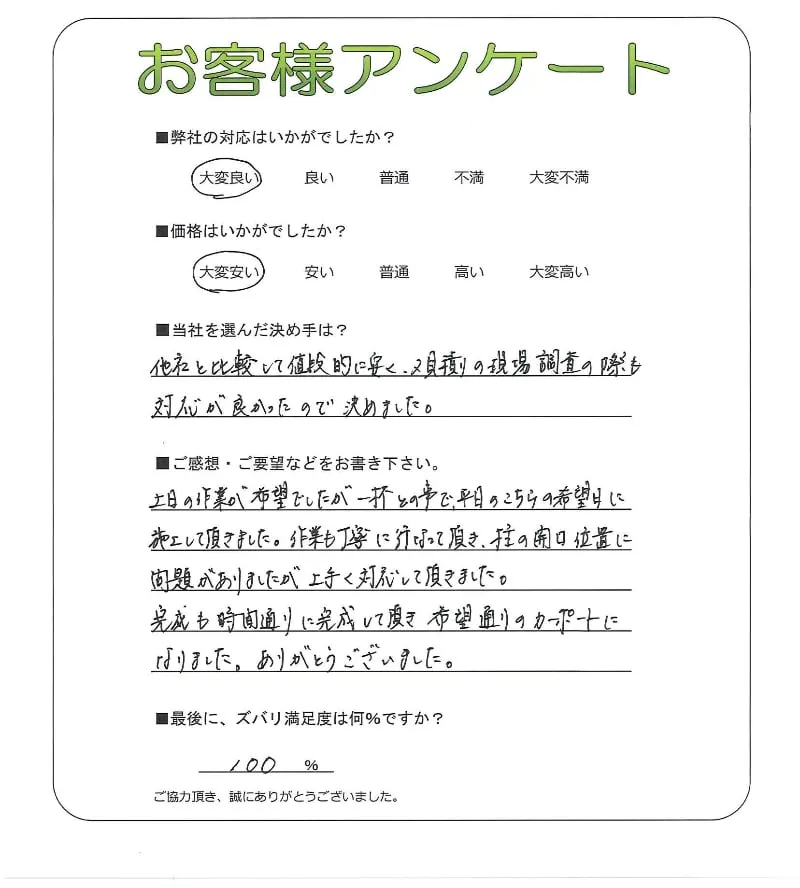 お客様アンケート
■弊社の対応はいかがでしたか？
大変良い 良い 普通 不満 大変不満
■価格はいかがでしたか？
大変安い 安い 普通 高い 大変高い
■当社を選んだ決め手は？
他社と比較して値段的に安く、見積りの現場調査の際も
対応が良かったので決めました。
■ご感想・ご要望などをお書き下さい。
土日の作業が希望でしたが一杯との事で、平日のこちらの希望日に
施工して頂きました。作業も丁寧に行なって頂き、柱の開口位置に
問題がありましたが上手く対応して頂きました。
完成も時間通りに完成して頂き希望通りのカーポートに
なりました。ありがとうございました。
■最後に、ズバリ満足度は何%ですか？
100 %
ご協力頂き、誠にありがとうございました。